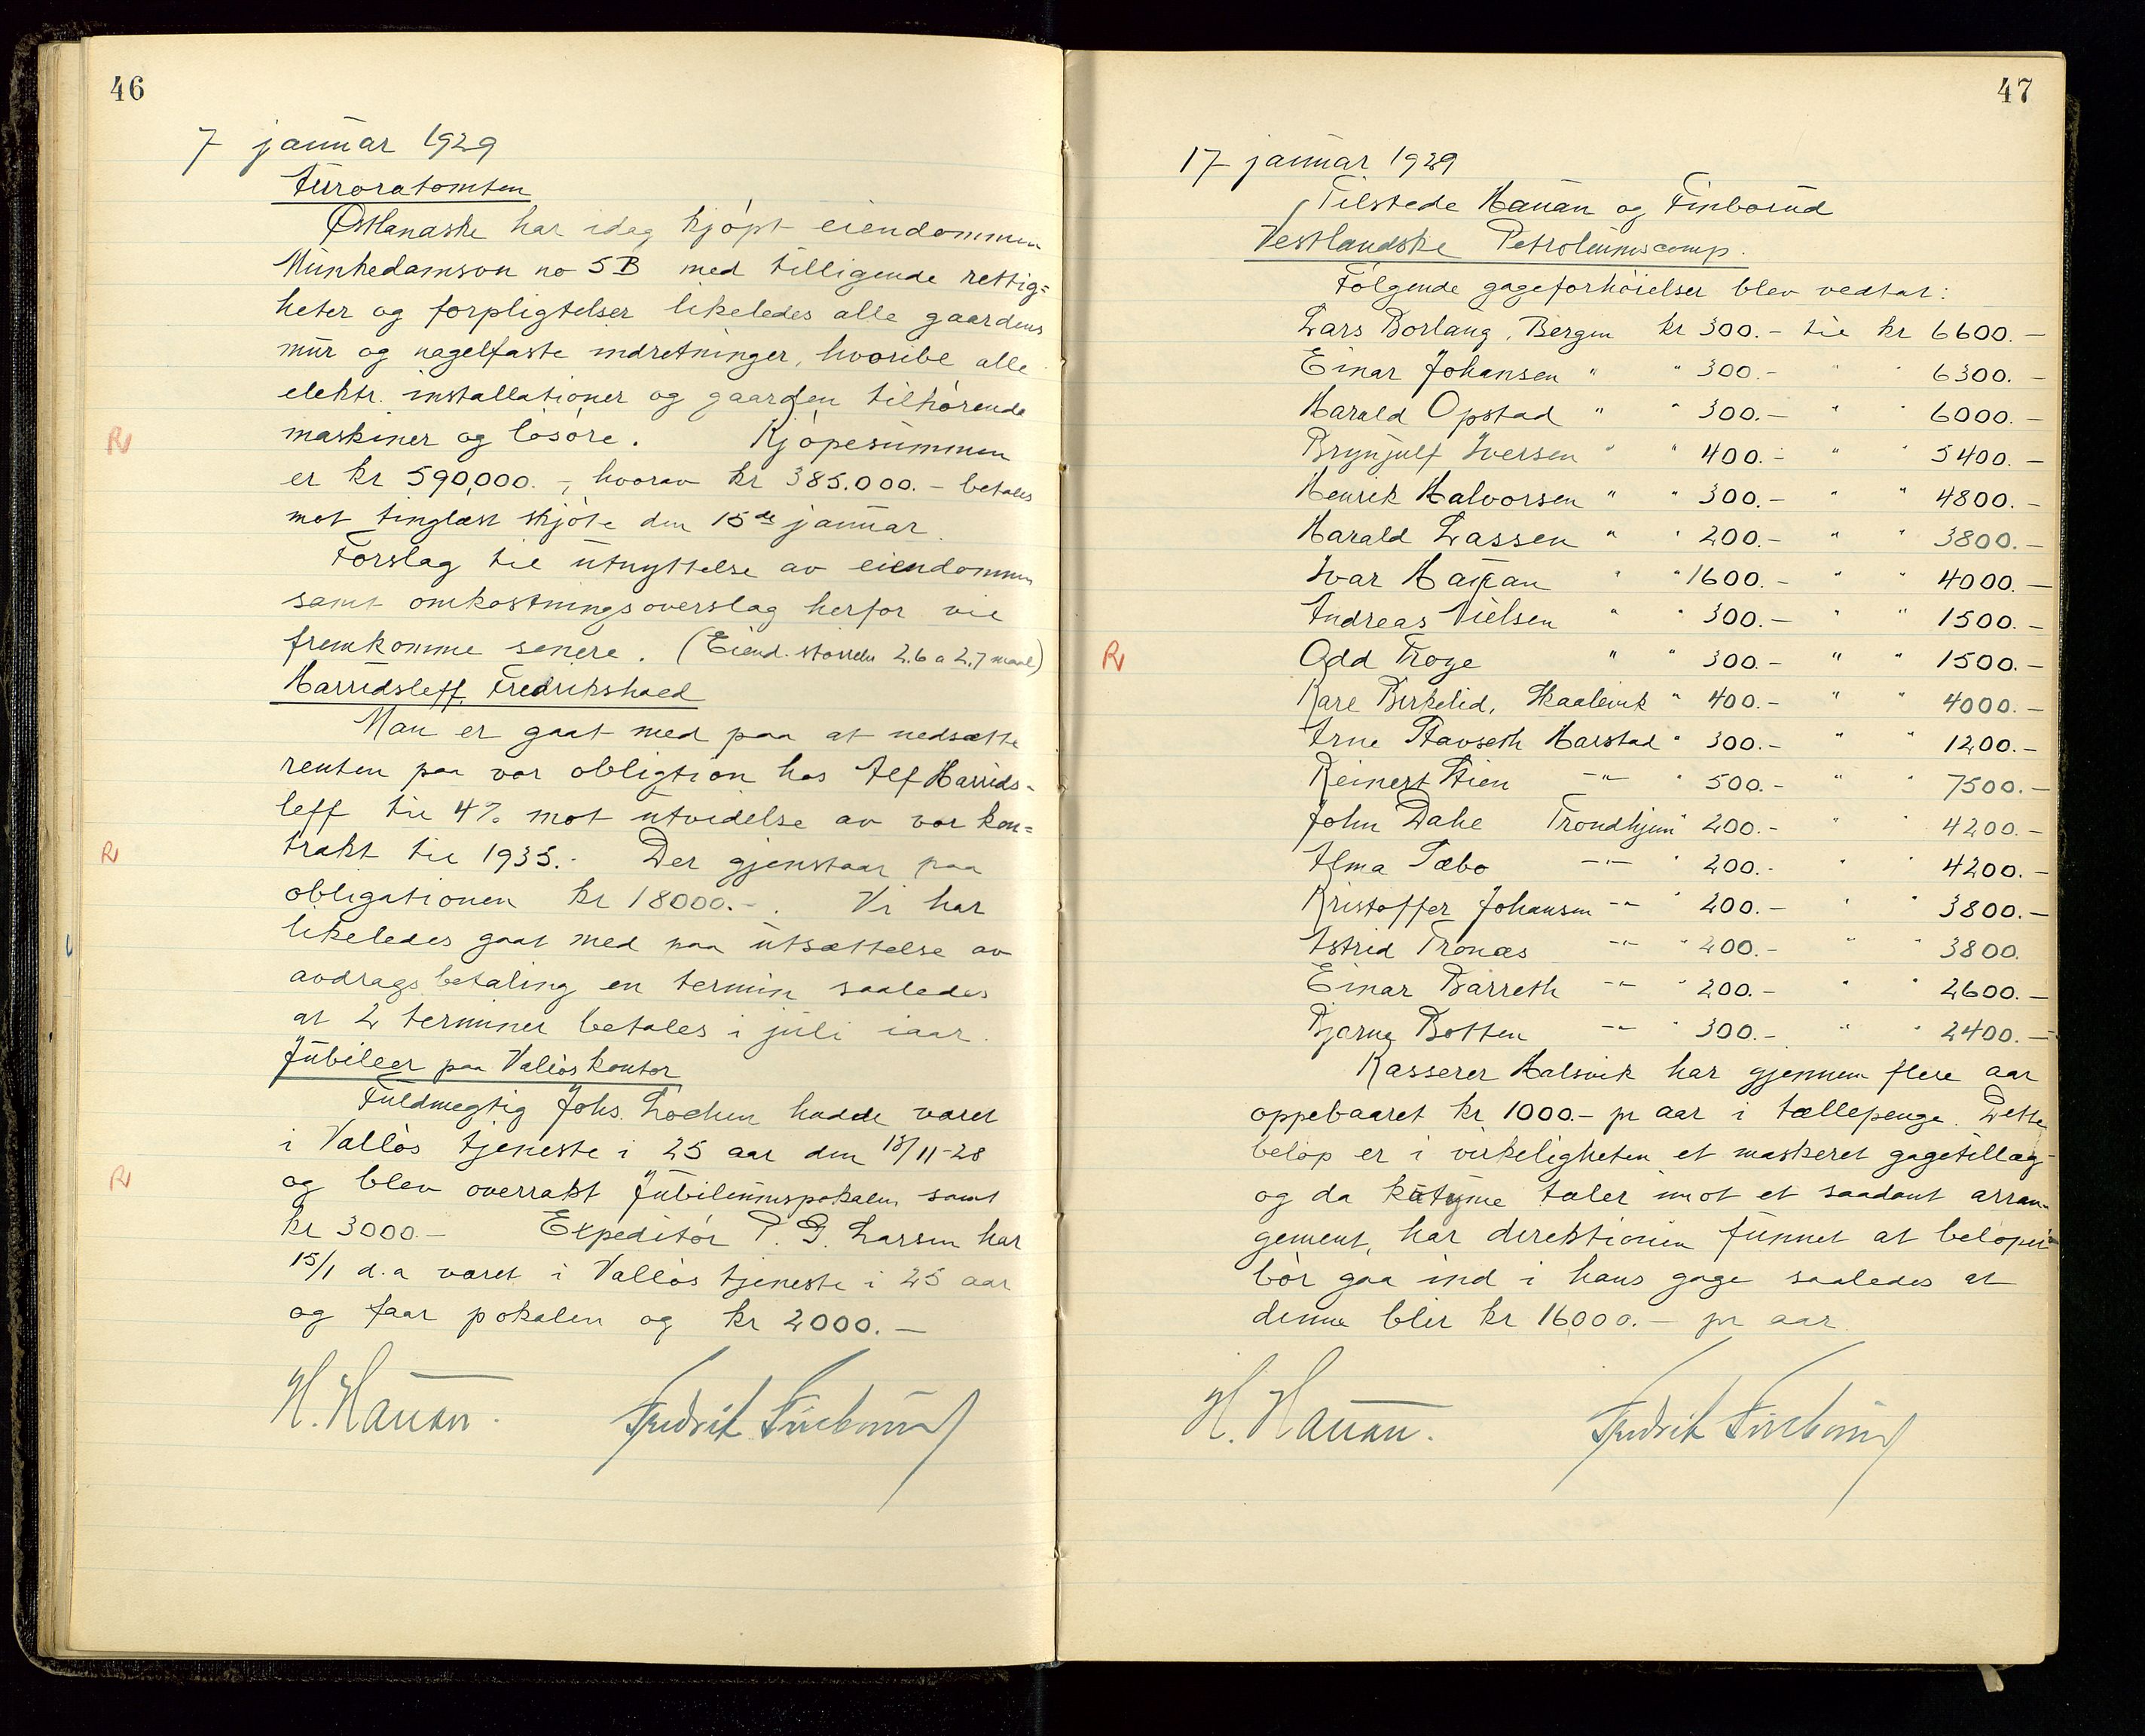 46
7 januar 1929
Furoratomten
Østlandske har idag kjøpt eiendommen
Munkedamsvn no 5B med tilligende rettig=
heter og forpligtelser likeledes alle gaardens
mur og nagelfaste indretninger, hvoribl alle
elektr. installationer og gaarden tilhørende
maskiner og løsøre. Kjøpesummen
er kr 590,000.-, hvorav kr 385.000.- betales
mot tinglæst skjøte den 15de januar.
Forslag til utnyttelse av eiendommen
samt omkostningsoverslag herfor vil
fremkomme senere. (Eiend. størrelse 2,6 a 2,7 maal)
Harridsleff, Fredrikshald
Man er gaat med paa at nedsætte
renten paa vor obligtion hos Alf Harrids-
leff til 4% mot utvidelse av vor kon=
trakt til 1935.- Der gjenstaar paa
obligationen kr 18000.-. Vi har
likeledes gaat med paa utsættelse av
avdragsbetaling en termin saaledes
at 2 terminer betales i juli iaar.
Jubileer paa Valløs kontor
Fuldmegtig Johs. Lochen hadde været
i Valløs tjeneste i 25 aar den 13/11-28
og blev overrakt Jubileumspokalen samt
kr 3000.- Expeditør P. G. Larsen har
15/1 d.a været i Valløs tjeneste i 25 aar
og faar pokalen og kr 2000.-
H. Hauan. Fredrik Finborud
47
17 januar 1929
Tilstede Hauan og Finborud
Vestlandske Petroleumscomp.
Følgende gageforhøielser blev vedtat:
Lars Borlaug, Bergen kr 300.- til kr 6600.-
Einar Johansen " " 300.- " " 6300.-
Harald Opstad " " 300.- " " 6000.-
Brynjulf Iversen " " 400.- " " 5400.-
Henrik Halvorsen " " 300.- " " 4800.-
Harald Lassen " " 200.- " " 3800.-
Ivar Haugan " " 1600.- " " 4000.-
Andreas Nielsen " " 300.- " " 1500.-
Odd Troye " " 300.- " " 1500.-
Kare Birkelid, Skaalevik " 400.- " " 4000.-
Arne Stavseth Harstad " 300.- " " 1200.-
Reinert Stien -"- " 500.- " " 7500.-
John Dahl Trondhjem " 200.- " " 4200.-
Alma Sæbo -"- " 200.- " " 4200.-
Kristoffer Johansen -"- " 200.- " " 3800.-
Astrid Tronæs -"- " 200.- " " 3800.
Einar Barreth -"- " 200.- " " 2600.-
Bjarne Botten -"- " 300.- " " 2400.-
Kasserer Halsvik har gjennem flere aar
oppebaaret kr 1000.- pr aar i tællepenge. Dette
beløp er i virkeligheten et maskeret gagetillæg
og da kutyme taler imot et saadant arran-
gement, har direktionen funnet at beløpet
bør gaa ind i hans gage saaledes at
denne blir kr 16000.- pr aar
H. Hauan. Fredrik Finborud